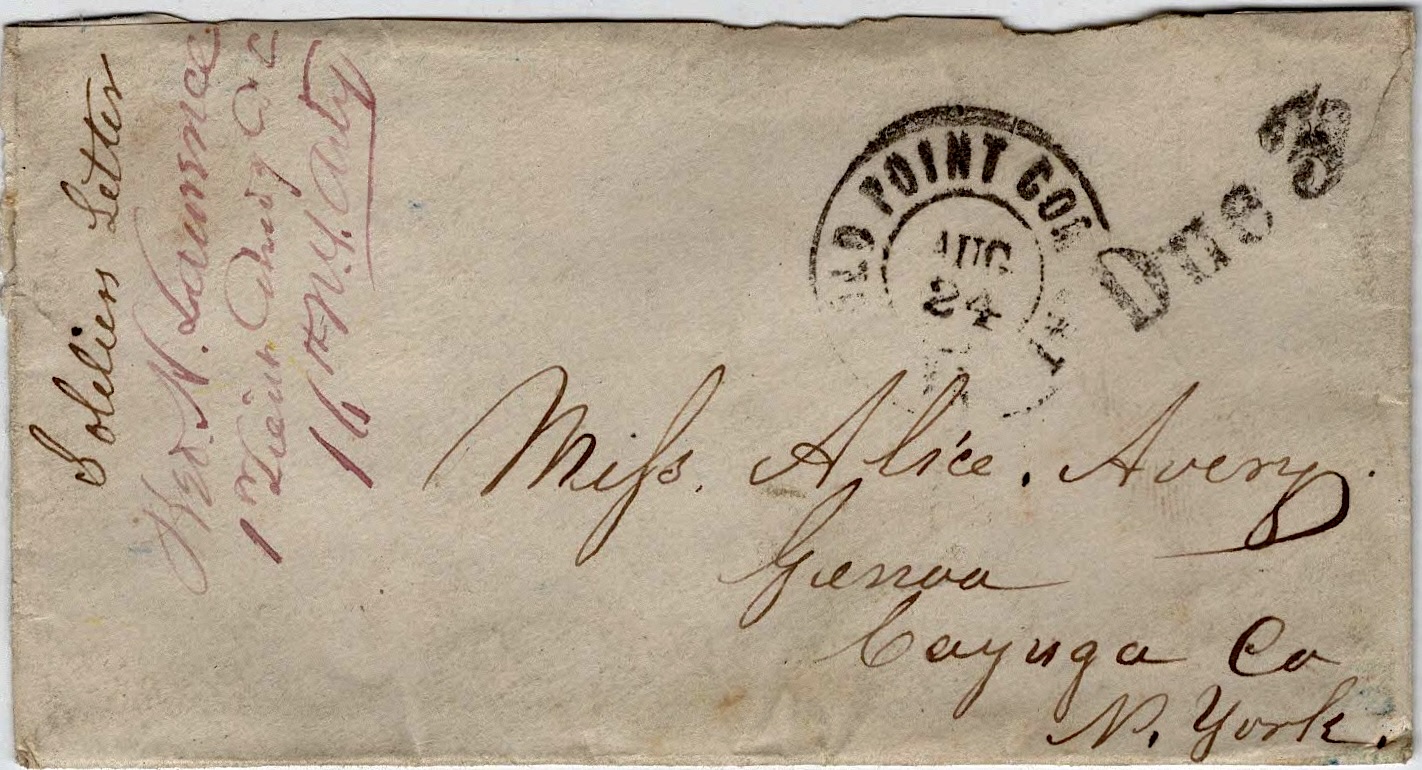 Soldiers Letter
N. Lawrence
1st Lieut Comdg Co
16th N.Y. Arty
OLD POINT COM
AUG
24
Due 3
Miss. Alice. Avery.
Genoa
Cayuga Co
N. York.